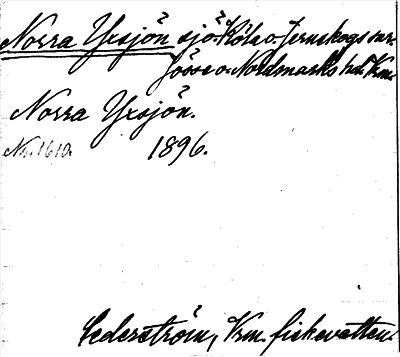 Norra Yxsjön sjö Köla o. Jernskogs snr.
Jösse o. Nordmarks hd. Vrm.
Norra Yxsjön.
No. 1610. 1896.
Cederström, Vrm. fiskevatten.